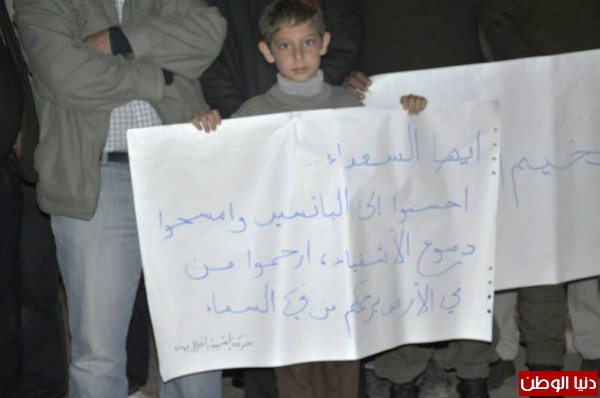 ايها السعداء...
احسنوا إلى البائسين وامسحوا
دموع الأشقياء، ارحموا من
في الأرض يرحمكم من في السماء
مخيم
دنيا الوطن